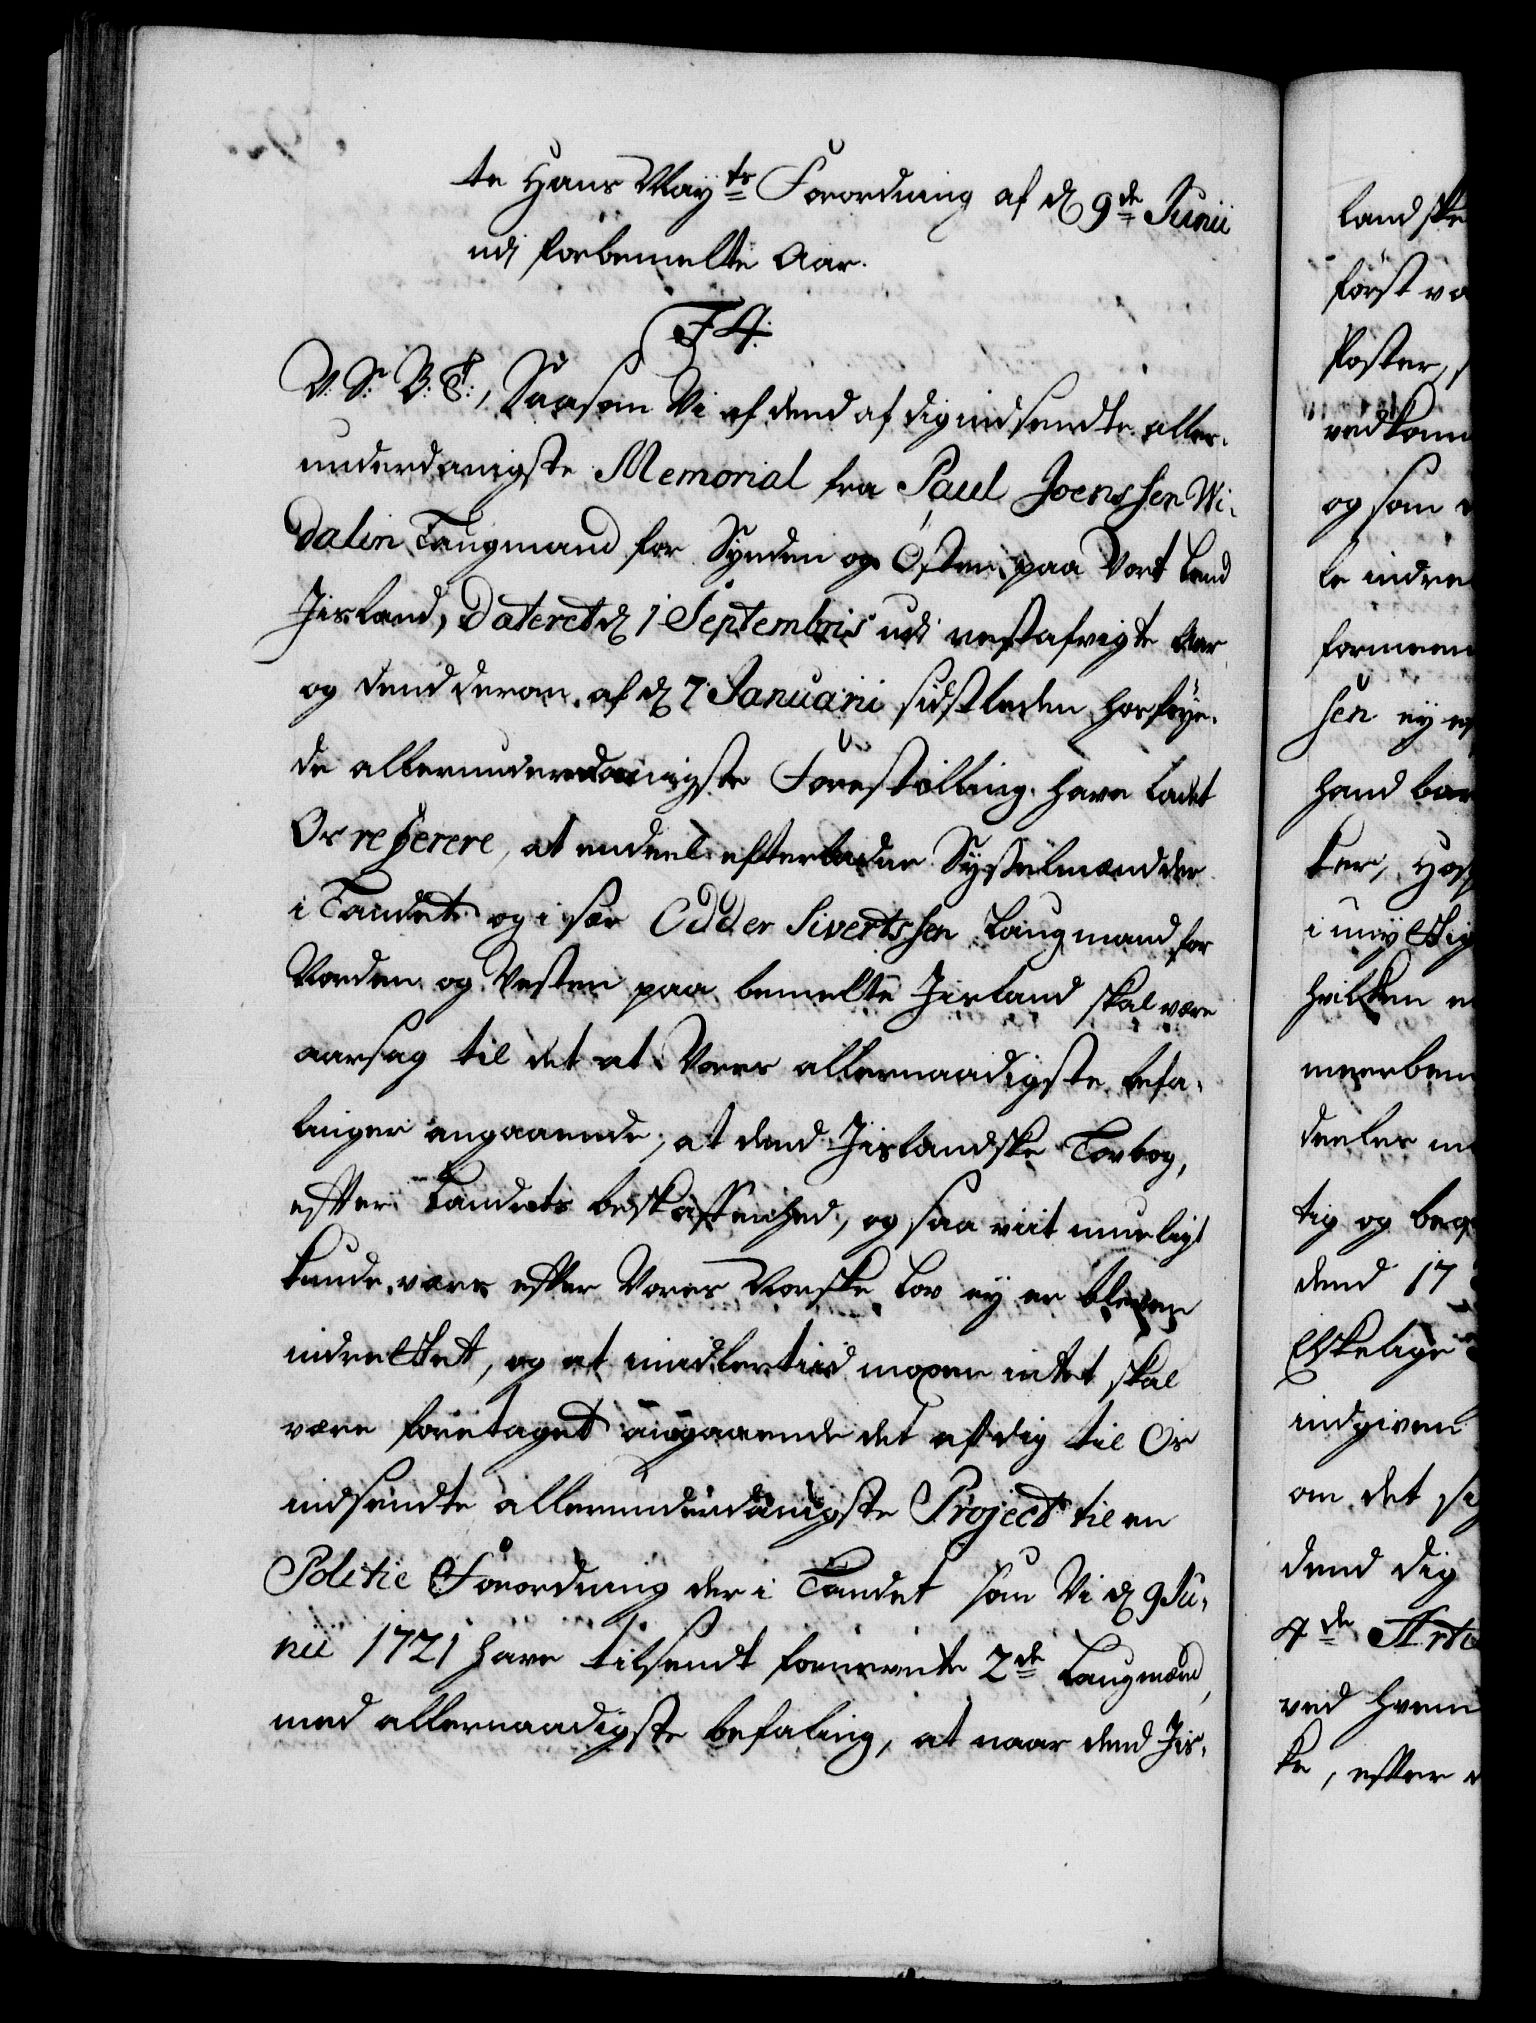 te Hans Mayts Forordning af d 9de Junii
udj forbemelte Aar.
F4.
V. Sr. B: T:, Saasom Vi af dend af dig indsendte aller-
underdanigste Memorial fra Paul Joenssen Wi-
dalin Laugmand for Synden og Østen paa Vort Land
Jisland, Dateret d 1 Septembris udi nestafvigte Aar
og dend derom af d 7 Januarii sidstleden hosføye-
de allerunderdanigste Forestilling have ladet
Os referere, at endeel efterladne Sysselmænd der
i Landet og i sær Odder Sivertssen Laugmand for
Norden og Vesten paa bemelte Jisland skal være
aarsag til det at Vores allernaadigste befa-
linger angaaende, at dend Jislandske Lovbog,
efter Landets beskaffenhed, og saa viit mueligt
kunde være efter Vores Norske Lov ej er bleven
indrettet, og at imidlertiid moxen intet skal
være foretaget angaaende det af dig til Os
indsendte allerunderdanigste Project til en
Politie Forordning der i Landet som Vi d 9 Ju-
nii 1721 have tilsendt fornevnte 2de Laugmænd,
med allernaadigste befaling, at naar dend Jis-
landske
først va
Poster, s
vedkom
og som
le indre
formeen
sen ej e
hand bar
ker, Hos
i møyttig
hvilken e
meerbem
deeles m
tig og beq
dend 17
Elskelige
indgiven
om det s
dend dig
4de Arti
ved hvem
ke, efter